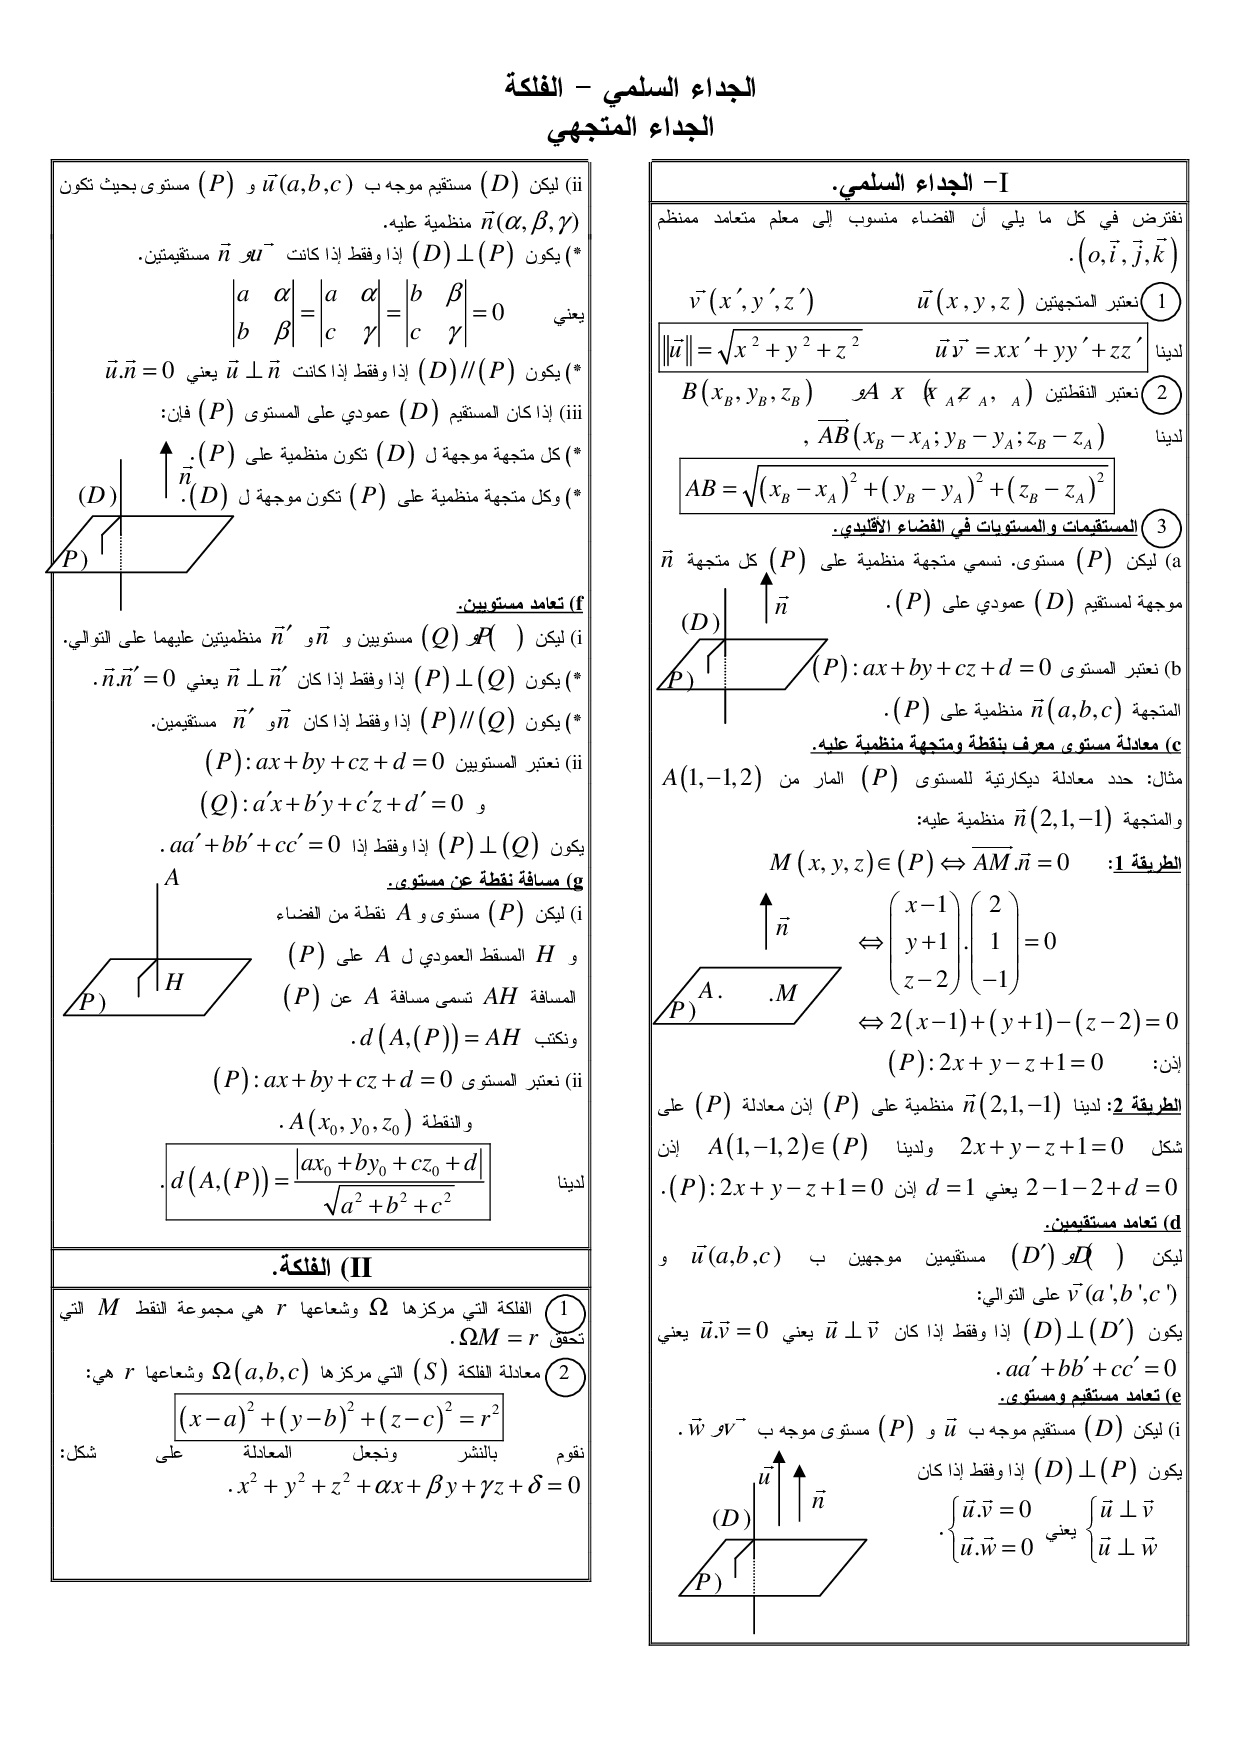 الجداء السلمي – الفلكة
الجداء المتجهي
I- الجداء السلمي.
نفترض في كل ما يلي أن الفضاء منسوب إلى معلم متعامد ممنظم
(o,i⃗,j⃗,k⃗).
1 نعتبر المتجهتين u⃗(x,y,z) v⃗(x′,y′,z′)
لدينا u⃗.v⃗ = xx′+yy′+zz′ ‖u⃗‖ = √(x²+y²+z²)
2 نعتبر النقطتين B(x_B,y_B,z_B)
لدينا AB⃗(x_B−x_A; y_B−y_A; z_B−z_A) ,
AB = √((x_B−x_A)²+(y_B−y_A)²+(z_B−z_A)²)
3 المستقيمات والمستويات في الفضاء الأقليدي.
a) ليكن (P) مستوى. نسمي متجهة منظمية على (P) كل متجهة n⃗
موجهة لمستقيم (D) عمودي على (P).
n⃗
(D)
P)
b) نعتبر المستوى (P): ax+by+cz+d=0
المتجهة n⃗(a,b,c) منظمية على (P).
c) معادلة مستوى معرف بنقطة ومتجهة منظمية عليه.
مثال: حدد معادلة ديكارتية للمستوى (P) المار من A(1,−1,2)
والمتجهة n⃗(2,1,−1) منظمية عليه:
الطريقة 1: M(x,y,z)∈(P) ⇔ AM⃗.n⃗=0
⇔ (x−1 ; y+1 ; z−2).(2 ; 1 ; −1) = 0
n⃗
A. .M
P)
⇔ 2(x−1)+(y+1)−(z−2)=0
إذن: (P): 2x+y−z+1=0
الطريقة 2: لدينا n⃗(2,1,−1) منظمية على (P) إذن معادلة (P) على
شكل 2x+y−z+1=0 ولدينا A(1,−1,2)∈(P) إذن
2−1−2+d=0 يعني d=1 إذن (P): 2x+y−z+1=0.
d) تعامد مستقيمين.
ليكن (D) و (D′) مستقيمين موجهين ب u⃗(a,b,c) و
v⃗(a',b',c') على التوالي:
يكون (D)⊥(D′) إذا وفقط إذا كان u⃗⊥v⃗ يعني u⃗.v⃗=0 يعني
aa′+bb′+cc′=0.
e) تعامد مستقيم ومستوى.
i) ليكن (D) مستقيم موجه ب u⃗ و (P) مستوى موجه ب v⃗ و w⃗.
يكون (D)⊥(P) إذا وفقط إذا كان
{u⃗⊥v⃗ ; u⃗⊥w⃗ يعني {u⃗.v⃗=0 ; u⃗.w⃗=0.
u⃗
n⃗
(D)
P)
ii) ليكن (D) مستقيم موجه ب u⃗(a,b,c) و (P) مستوى بحيث تكون
n⃗(α,β,γ) منظمية عليه.
*) يكون (D)⊥(P) إذا وفقط إذا كانت u⃗ و n⃗ مستقيمتين.
يعني |a α ; b β| = |a α ; c γ| = |b β ; c γ| = 0
*) يكون (D)//(P) إذا وفقط إذا كانت u⃗⊥n⃗ يعني u⃗.n⃗=0
iii) إذا كان المستقيم (D) عمودي على المستوى (P) فإن:
*) كل متجهة موجهة ل (D) تكون منظمية على (P).
*) وكل متجهة منظمية على (P) تكون موجهة ل (D).
n⃗
(D)
P)
f) تعامد مستويين.
i) ليكن (P) و (Q) مستويين و n⃗ و n⃗′ منظميتين عليهما على التوالي.
*) يكون (P)⊥(Q) إذا وفقط إذا كان n⃗⊥n⃗′ يعني n⃗.n⃗′=0.
*) يكون (P)//(Q) إذا وفقط إذا كان n⃗ و n⃗′ مستقيمين.
ii) نعتبر المستويين (P): ax+by+cz+d=0
و (Q): a′x+b′y+c′z+d′=0
يكون (P)⊥(Q) إذا وفقط إذا aa′+bb′+cc′=0.
g) مسافة نقطة عن مستوى.
i) ليكن (P) مستوى و A نقطة من الفضاء
و H المسقط العمودي ل A على (P)
المسافة AH تسمى مسافة A عن (P)
ونكتب d(A,(P))=AH.
A
H
P)
ii) نعتبر المستوى (P): ax+by+cz+d=0
والنقطة A(x₀,y₀,z₀).
لدينا d(A,(P)) = |ax₀+by₀+cz₀+d| / √(a²+b²+c²).
II) الفلكة.
1 الفلكة التي مركزها Ω وشعاعها r هي مجموعة النقط M التي
تحقق ΩM=r.
2 معادلة الفلكة (S) التي مركزها Ω(a,b,c) وشعاعها r هي:
(x−a)²+(y−b)²+(z−c)²=r²
نقوم بالنشر ونجعل المعادلة على شكل:
x²+y²+z²+αx+βy+γz+δ=0.